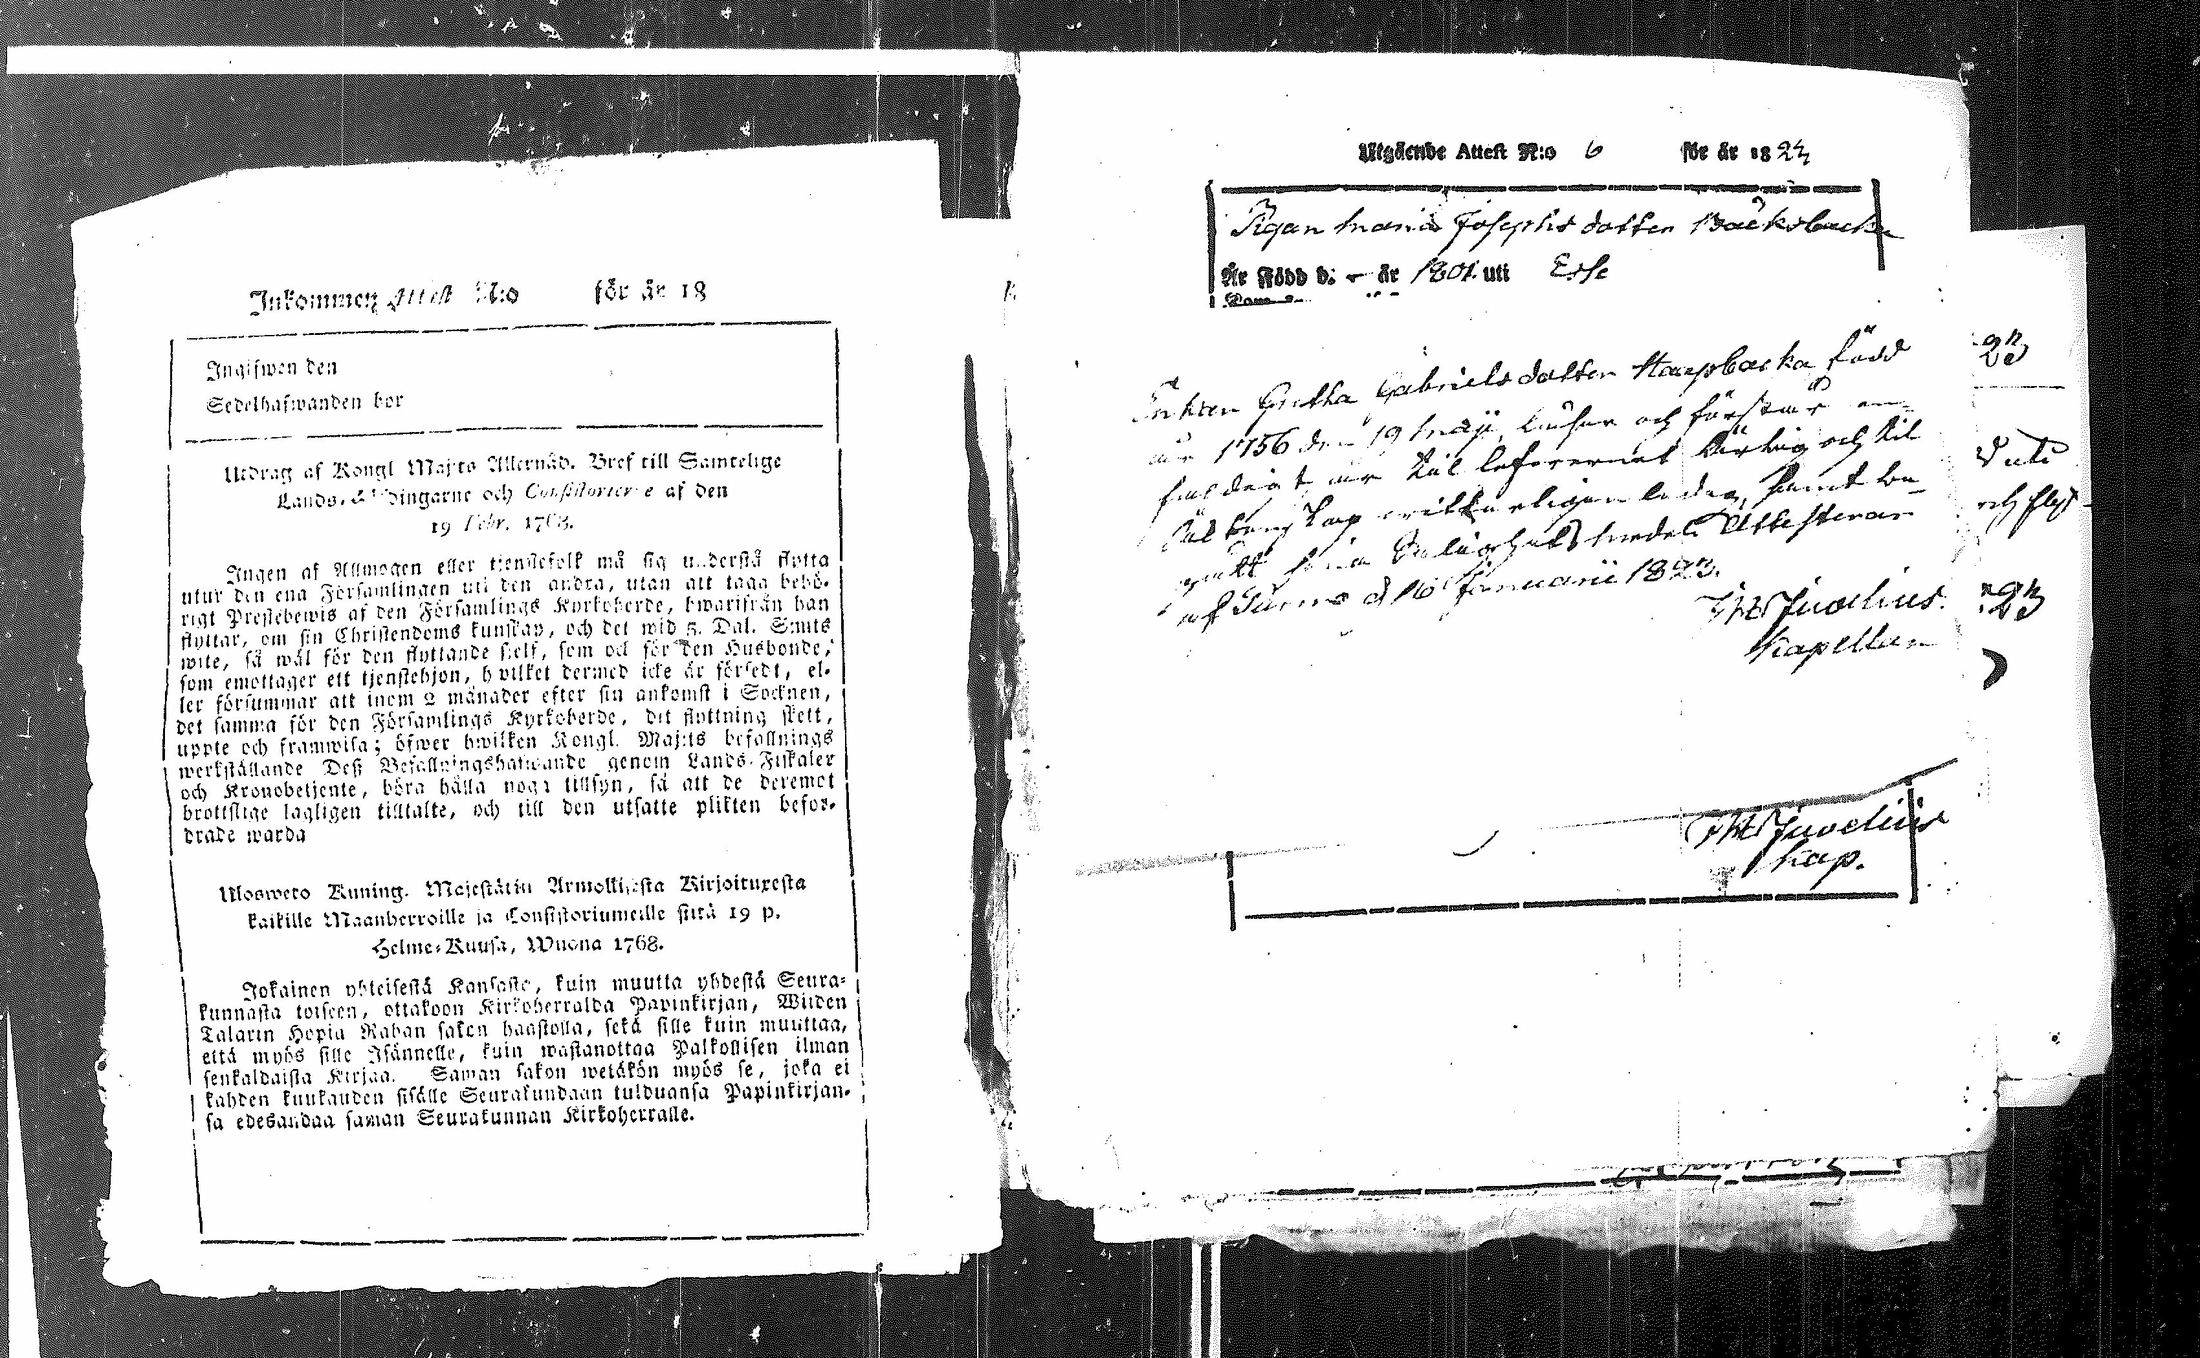 Inkommen Attest N:o för år 18
Ingifwen den
Sedelhafwanden bor
Utdrag af Kongl Maj:ts Allernåd. Bref till Samtelige
Lands-Höfdingarne och Consistorierne af den
19 Febr. 1768.
Ingen af Allmogen eller tjenstefolk må sig understå flytta
utur den ena Församlingen uti den andra, utan att taga behö-
rigt Prestebewis af den Församlings Kyrkoherde, hwarifrån han
flyttar, om sin Christendoms kunskap, och det wid 5. Dal. S:mts
wite, så wäl för den flyttande sielf, som ock för den Husbonde,
som emottager ett tjenstehjon, hwilket dermed icke är försedt, el-
ler försummar att inom 2 månader efter sin ankomst i Socknen,
det samma för den Församlings Kyrkoherde, dit flyttning skett,
uppte och framwisa; öfwer hwilken Kongl. Maj:ts befallnings
werkställande Deß Befallningshafwande genom Lands-Fiskaler
och Kronobetjente, böra hålla noga tillsyn, så att de deremot
brottslige lagligen tilltalte, och till den utsatte plikten befor-
drade warda
Uloswето Kuning. Majestätin Armollisesta Kirjoituxesta
kaikille Maanherroille ja Consistoriumeille siitä 19 p.
Helme-Kuusa, Wuona 1768.
Jokainen yhteisestä Kansasta, kuin muutta yhdestä Seura-
kunnasta toiseen, ottakoon Kirkoherralda Papinkirjan, Wiiden
Talarin Hopia Rahan sakon haastolla, sekä sille kuin muuttaa,
että myös sille Isännelle, kuin wastanottaa Palkollisen ilman
senkaldaista Kirjaa. Saman sakon wetäkön myös se, joka ei
kahden kuukauden sisälle Seurakundaan tulduansa Papinkirjan-
sa edesandaa saman Seurakunnan Kirkoherralle.
Utgående Attest N:o 6 för år 1823
Pigan Maria Josephsdotter Bäcksbacka
Är född d: – år 1801 uti Esse
Enkan Gretha Gabrielsdotter Haapbacka född
år 1756 den 19 Maji, läser och förstår en-
faldigt, är til lefvernet
samt be-
gått sina Salighetsmedel Attesterar
af d 16 Januarii 1823.
Juvelius.
Kapellan
Juvelius
Kap.
23
d uti
och
23